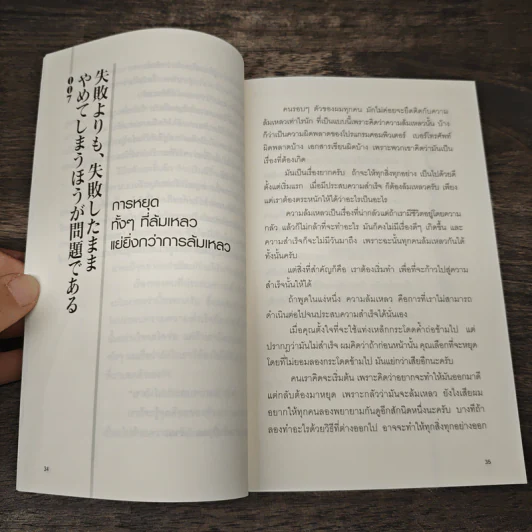 007
失敗よりも、失敗したまま
やめてしまうほうが問題である
การหยุด
ทั้งๆ ที่ล้มเหลว
แย่ยิ่งกว่าการล้มเหลว
34
คนรอบๆ ตัวของผมทุกคน มักไม่ค่อยจะยึดติดกับความ
ล้มเหลวเท่าไรนัก ที่เป็นแบบนี้เพราะคิดว่าความล้มเหลวนั้น บ้าง
ก็ว่าเป็นความผิดพลาดของโปรแกรมคอมพิวเตอร์ เบอร์โทรศัพท์
ผิดพลาดบ้าง เอกสารเขียนผิดบ้าง เพราะพวกเขาคิดว่ามันเป็น
เรื่องที่ต้องเกิด
มันเป็นเรื่องยากครับ ถ้าจะให้ทุกสิ่งทุกอย่าง เป็นไปด้วยดี
ตั้งแต่เริ่มแรก เมื่อมีประสบความสำเร็จ ก็ต้องล้มเหลวครับ เพียง
แต่เราต้องตระหนักให้ได้ว่าอะไรเป็นอะไร
ความล้มเหลวเป็นเรื่องที่น่ากลัวแต่ถ้าเรามีชีวิตอยู่โดยความ
กลัว แล้วก็ไม่กล้าที่จะทำอะไร มันก็คงไม่มีเรื่องดีๆ เกิดขึ้น และ
ความสำเร็จก็จะไม่มีวันมาถึง เพราะฉะนั้นทุกคนล้มเหลวกันได้
ทั้งนั้นครับ
แต่สิ่งที่สำคัญก็คือ เราต้องเริ่มทำ เพื่อที่จะก้าวไปสู่ความ
สำเร็จนั้นให้ได้
ถ้าพูดในแง่หนึ่ง ความล้มเหลว คือการที่เราไม่สามารถ
ดำเนินต่อไปจนประสบความสำเร็จได้นั่นเอง
เมื่อคุณตั้งใจที่จะใช้แท่งเหล็กกระโดดค้ำถ่อข้ามไป แต่
ปรากฏว่ามันไม่สำเร็จ ผมคิดว่าถ้าก่อนหน้านั้น คุณเลือกที่จะหยุด
โดยที่ไม่ยอมลองกระโดดข้ามไป มันแย่กว่าเสียอีกนะครับ
คนเราคิดจะเริ่มต้น เพราะคิดว่าอยากจะทำให้มันออกมาดี
แต่กลับต้องมาหยุด เพราะกลัวว่ามันจะล้มเหลว ยังไงเสียผม
อยากให้ทุกคนลองพยายามกันดูอีกสักนิดหนึ่งนะครับ บางทีถ้า
ลองทำอะไรด้วยวิธีที่ต่างออกไป อาจจะทำให้ทุกสิ่งทุกอย่างออก
35